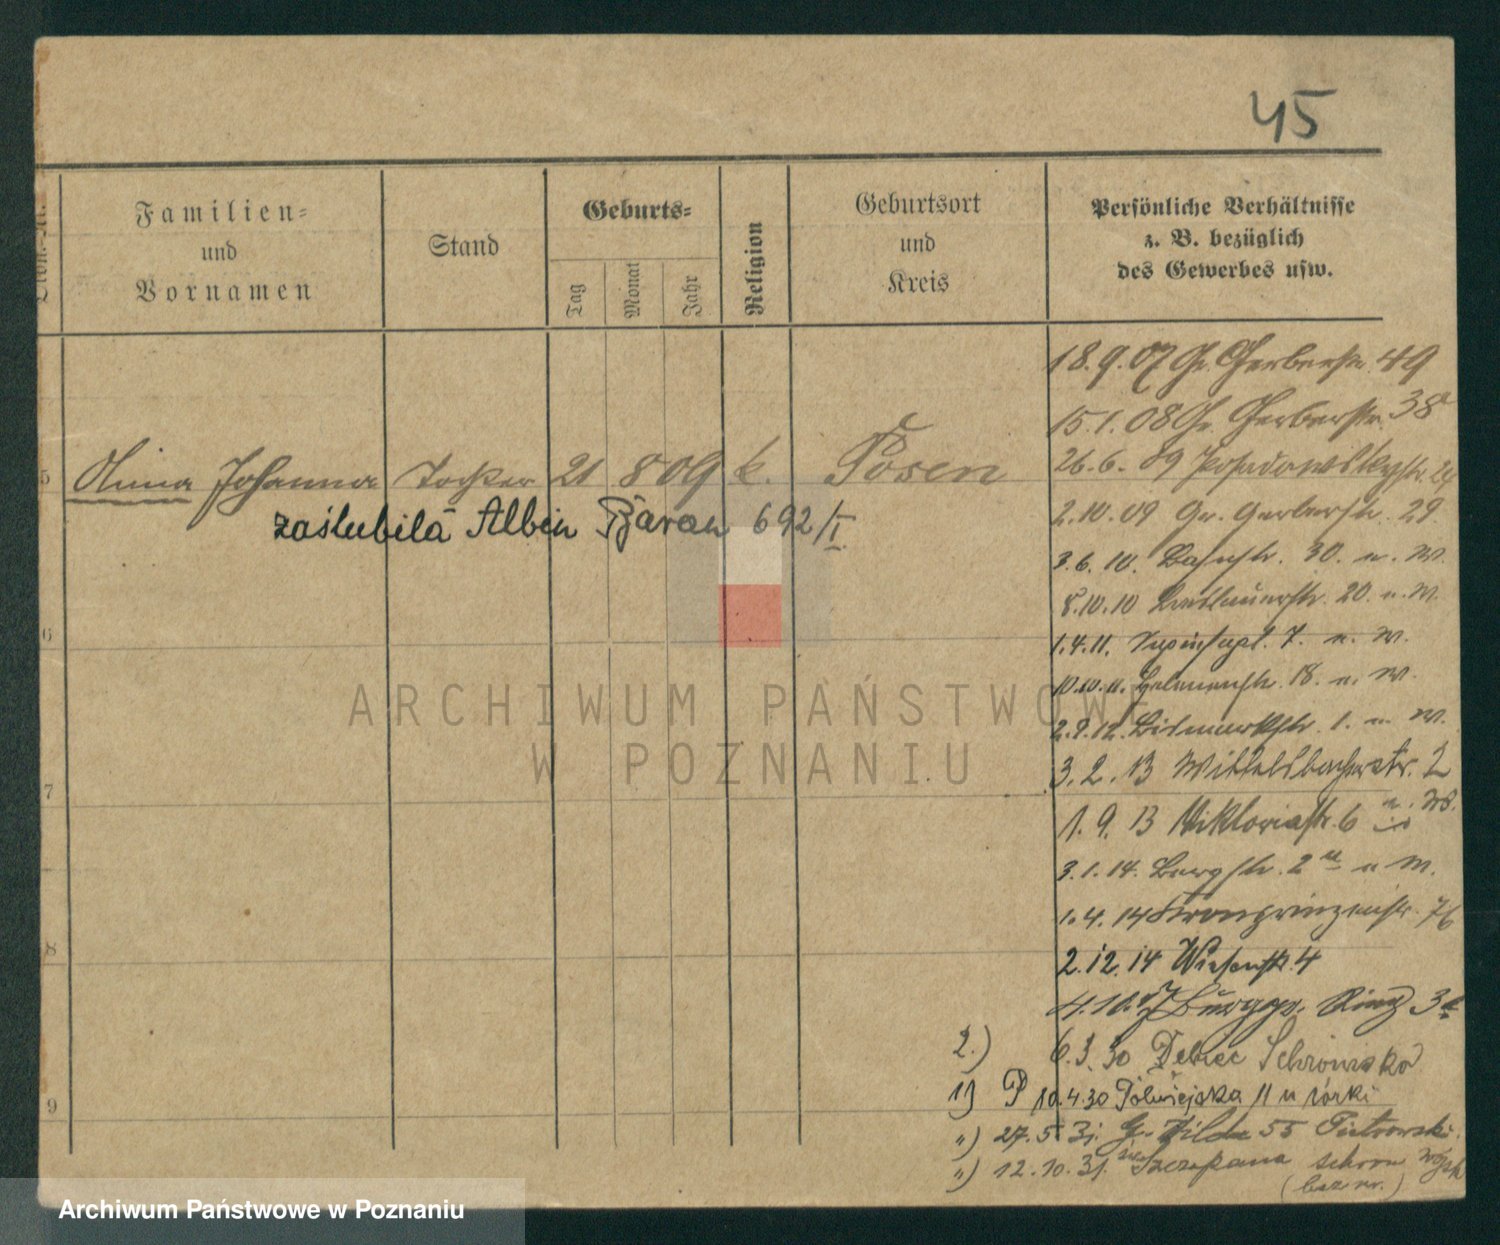 45
Familien=
und
Vornamen
Stand
Geburts=
Tag
Monat
Jahr
Religion
Geburtsort
und
Kreis
Persönliche Verhältnisse
z. B. bezüglich
des Gewerbes usw.
18.9.07 Gr. Gerberstr. 49
15.1.08 Gr. Gerberstr. 38a
5 Anna Johanna Tochter 21 8 09 k. Posen
26.6.09 Posadowskystr. 29
zaślubiła Albin Baran 692/I
2.10.09 Gr. Gerberstr. 29
3.6.10. 30. u. W.
8.10.10 Breslauerstr. 20. u. W.
6
1.4.11. 7. u. W.
10.10.11. 18. u. W.
2.9.12. Bismarkstr. 1. u. W.
3.2.13 Wittelsbacherstr. 2
7
1.9.13 Viktoriastr. 6 u. W.
3.1.14. Bergstr. 2a u W.
1.4.14 Kronprinzenstr. 76
8
2.12.14 Wiesenstr. 4
4.10.17 Burggr. Ring 3a
2.) 6.3.30 Dębiec Schronisko
9
1) P 10.4.30 Półwiejska 11 u córki
") 27.5.31. G. Wilda 55 Piotrowski
") 12.10.31. Szczepana schron
(bez nr.)
ARCHIWUM PAŃSTWOWE
W POZNANIU
Archiwum Państwowe w Poznaniu